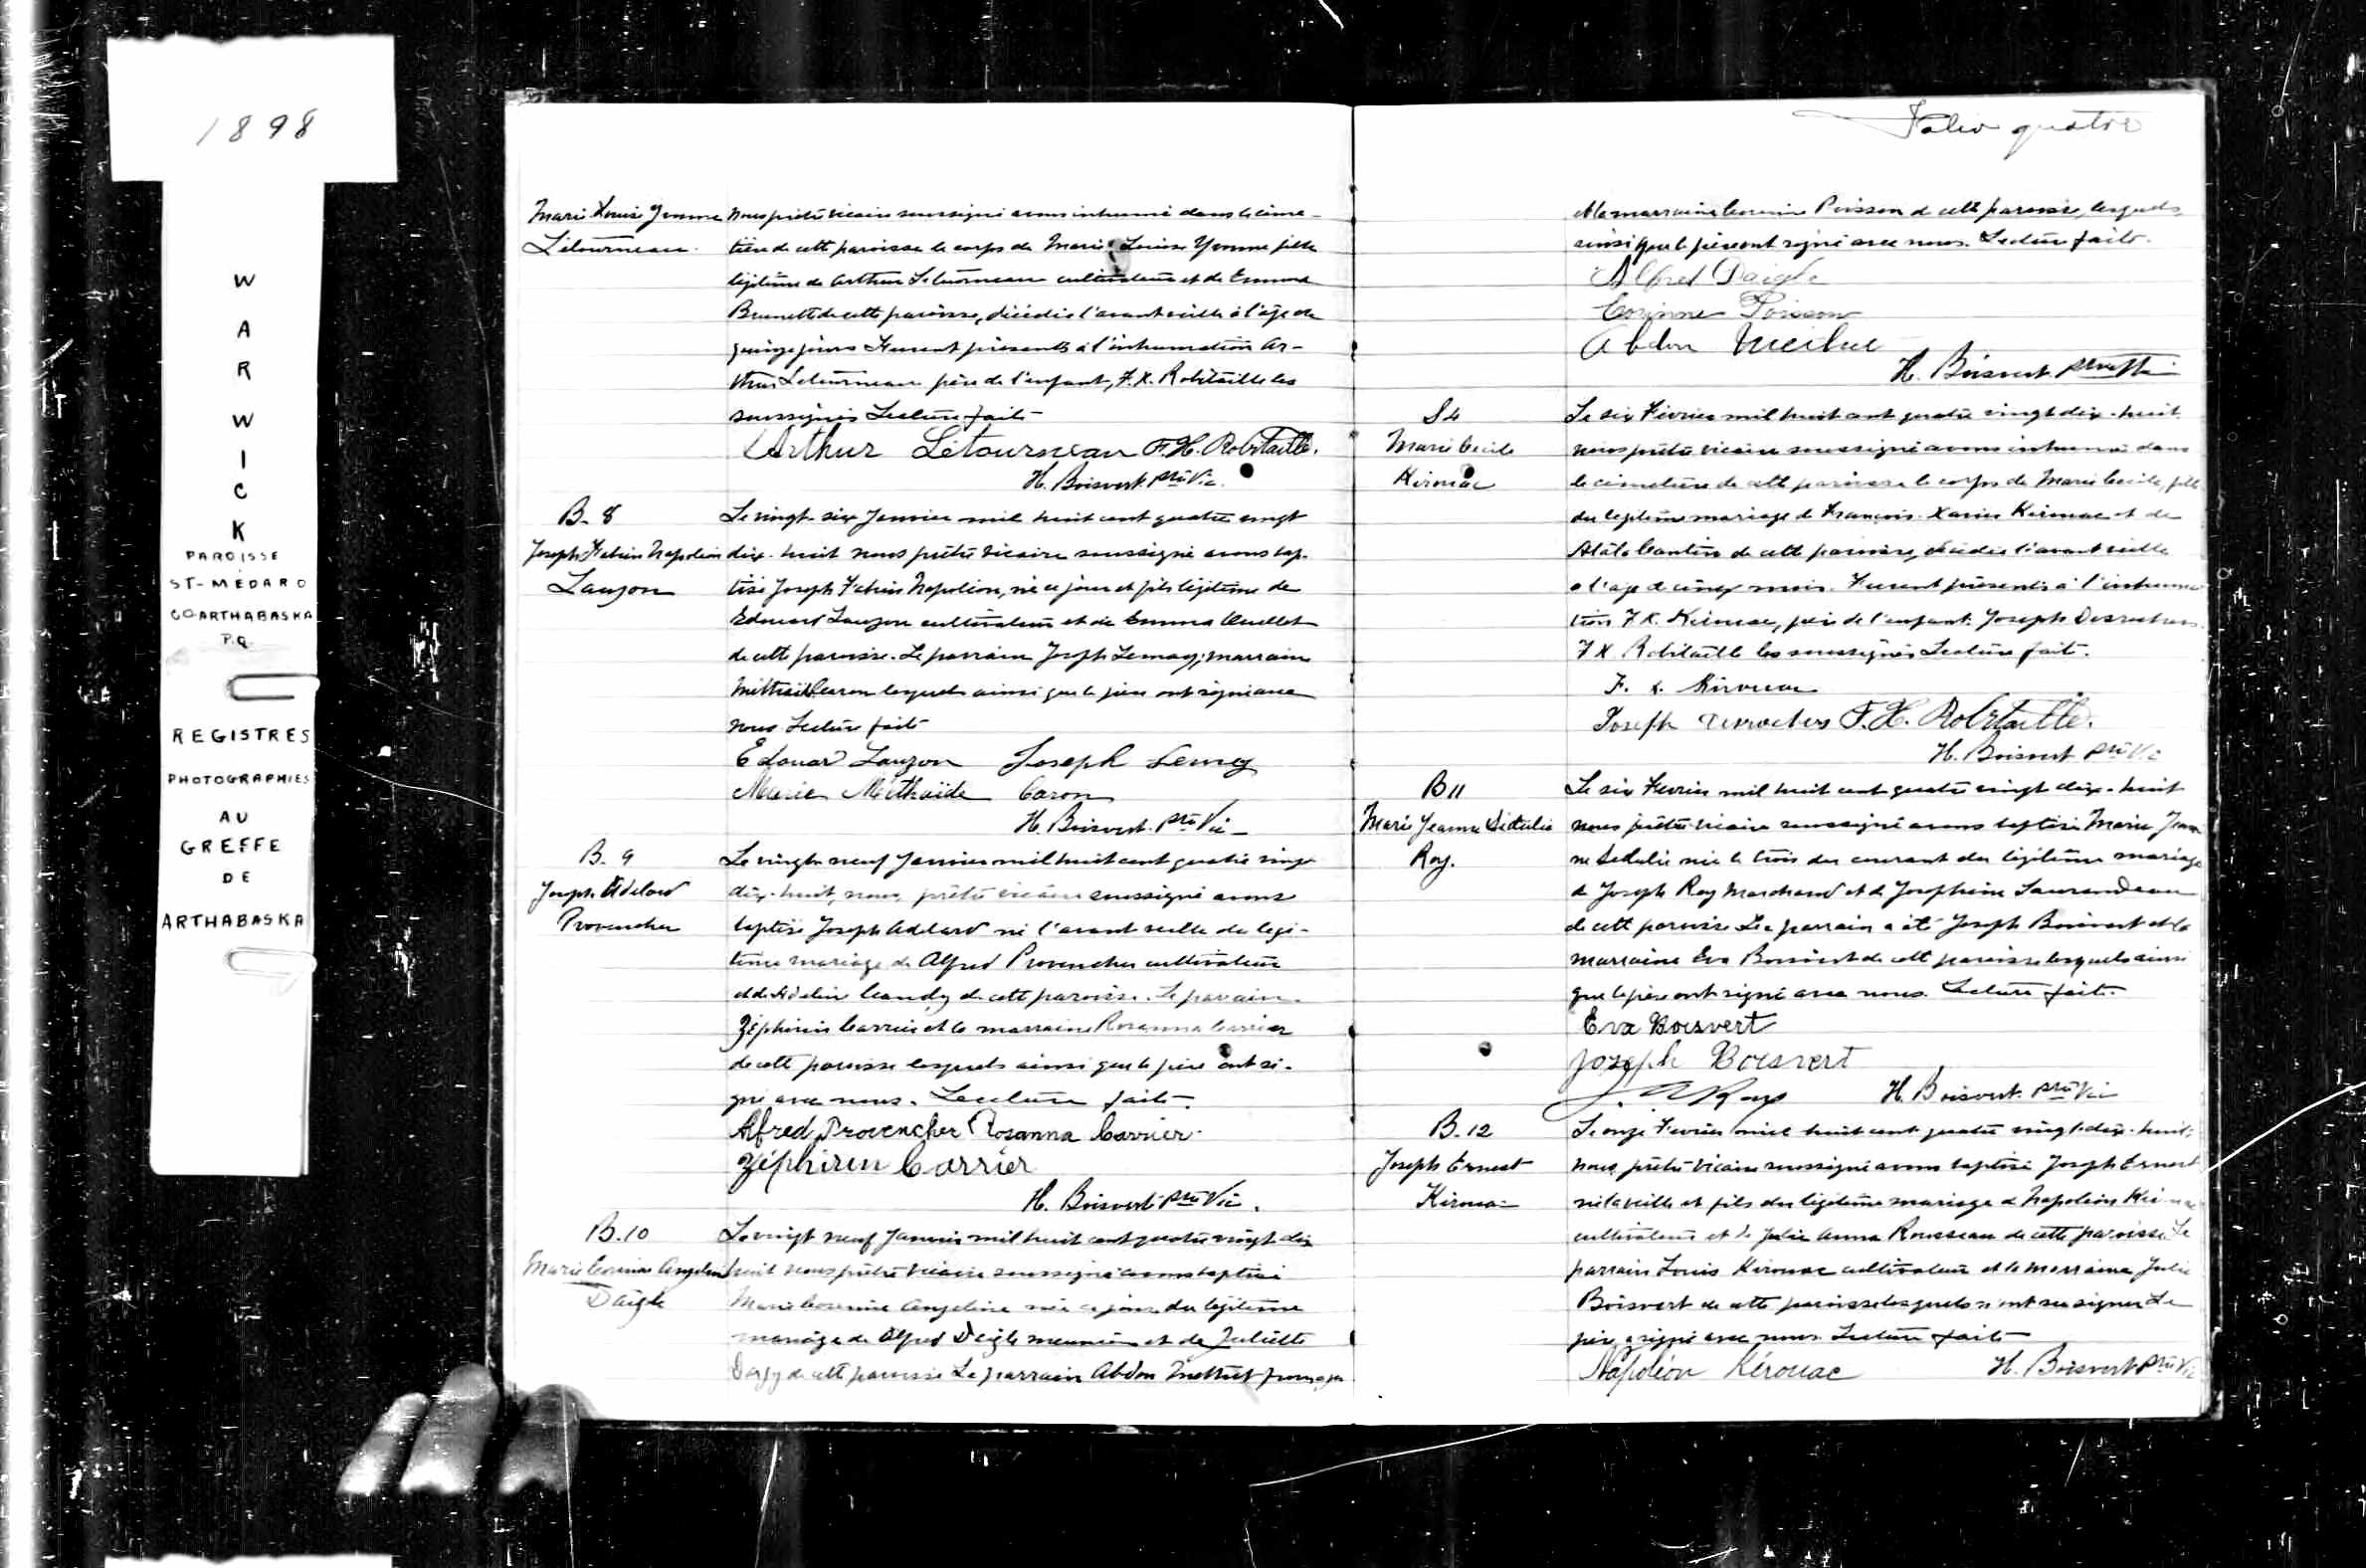 1898
WARWICK
PAROISSE
ST-MÉDARD
CO ARTHABASKA
P.Q.
REGISTRES
PHOTOGRAPHIES
AU
GREFFE
DE
ARTHABASKA
Marie Louise Yvonne
Létourneau
nous prêtre vicaire soussigné avons inhumé dans le cime-
tière de cette paroisse le corps de Marie Louise Yvonne fille
légitime de Arthur Létourneau cultivateur et de Emma
Brunette de cette paroisse, décédée l'avant veille à l'âge de
quinze jours Furent présents à l'inhumation Ar-
thur Létourneau père de l'enfant, F. X. Robitaille les
soussignés Lecture faite
Arthur Létourneau F. X. Robitaille.
H. Boisvert Ptre Vic.
B. 8
Joseph Fabien Napoléon
Lauzon
Le vingt-six Janvier mil huit cent quatre vingt
dix-huit nous prêtre vicaire soussigné avons bap-
tisé Joseph Fabien Napoléon, né ce jour et fils légitime de
Edouard Lauzon cultivateur et de Emma Ouellet
de cette paroisse. Le parrain Joseph Lemay; marraine
Caron lesquels ainsi que le père ont signé avec
nous Lecture faite
Edouar Lauzon Joseph Lemay
Marie Mathaïde Caron
H. Boisvert Ptre Vic
B. 9
Joseph Adélard
Provencher
Le vingt neuf Janvier mil huit cent quatre vingt
dix-huit, nous, prêtre vicaire soussigné avons
baptisé Joseph Adélard né l'avant veille du légi-
time mariage de Alfred Provencher cultivateur
et de Adeline de cette paroisse. Le parrain
Zéphirin Carrier et la marraine Rosanna Carrier
de cette paroisse lesquels ainsi que le père ont si-
gné avec nous. Lecture faite.
Alfred Provencher Rosanna Carrier
Zéphiren Carrier
H. Boisvert Ptre Vic.
B. 10
Marie Corinne Angelina
Daigle
Le vingt neuf Janvier mil huit cent quatre vingt dix
huit nous prêtre vicaire soussigné avons baptisé
Marie Corinne Angeline née ce jour du légitime
mariage de Alfred Daigle meunier et de Juliette
de cette paroisse Le parrain Abdon
Folio quatre
et la marraine Corinne Poisson de cette paroisse, lesquels,
ainsi que le père ont signé avec nous. Lecture faite.
Alfred Daigle
Corinne Poisson
Abdon
H. Boisvert
S4
Marie Cecile
Kirouac
Le six Février mil huit cent quatre vingt dix-huit
nous prêtre vicaire soussigné avons inhumé dans
le cimetière de cette paroisse le corps de Marie Cecile, fille
du légitime mariage de François-Xavier Kirouac et de
Cantin de cette paroisse, décédée l'avant veille
à l'âge de cinq mois. Furent présents à l'inhuma
tion F X. Kirouac, père de l'enfant. Joseph Desrochers
F X Robitaille les soussignés Lecture faite.
F. X. Kirouac
Joseph Desrochers F. X. Robitaille.
H. Boisvert Ptre Vic
B 11
Marie Jeanne Sédulie
Roy.
Le six Fevrier mil huit cent quatre vingt dix-huit
nous prêtre vicaire soussigné avons baptisé Marie Jean
ne Sédulie née le trois du courant du légitime mariage
de Joseph Roy Marchand et de Josephine Laurendeau
de cette paroisse Le parrain a été Joseph Boisvert et la
marraine Eva Boisvert de cette paroisse lesquels ainsi
que le père ont signé avec nous. Lecture faite.
Eva Boisvert
Joseph Boisvert
Roy H. Boisvert Ptre Vic
B. 12
Joseph Ernest
Kirouac
Le onze Fevrier mil huit cent quatre vingt dix-huit
nous, prêtre vicaire soussigné avons baptisé Joseph Ernest
né la veille et fils du légitime mariage de Napoléon Kirouac
cultivateur et de Julie Anna Rousseau de cette paroisse Le
parrain Louis Kirouac cultivateur et la marraine Julie
Boisvert de cette paroisse lesquels n'ont su signer Le
père a signé avec nous Lecture faite
Napoléon Kérouac H. Boisvert Ptre Vic